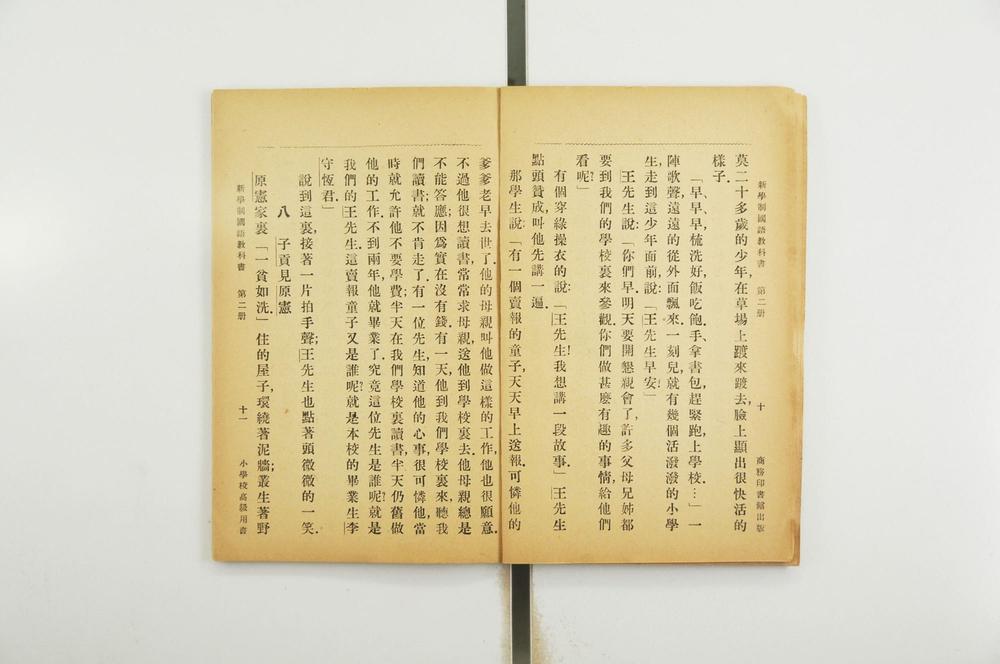 新學制國語教科書 第二册 十 商務印書館出版
莫二十多歲的少年,在草場上踱來踱去,臉上顯出很快活的
樣子.
「早,早,早,梳洗好,飯吃飽,手拿書包,趕緊跑上學校.…」一
陣歌聲,遠遠的從外面飄來.一刻兒,就有幾個活潑潑的小學
生,走到這少年面前說:「王先生早安!」
王先生說:「你們早,明天要開懇親會了,許多父母兄姊,都
要到我們的學校裏來參觀,你們做甚麼有趣的事情,給他們
看呢?」
有個穿綠操衣的說:「王先生!我想講一段故事.」王先生
點頭贊成,叫他先講一遍.
那學生說:「有一個賣報的童子,天天早上送報.可憐他的
爹爹,老早去世了,他的母親叫他做這樣的工作,他也很願意.
不過他很想讀書,常常求母親,送他到學校裏去.他母親總是
不能答應,因爲實在沒有錢.有一天,他到我們學校裏來,聽我
們讀書;就不肯走了.有一位先生,知道他的心事,很可憐他,當
時就允許他不要學費;半天在我們學校裏讀書,半天仍舊做
他的工作.不到兩年,他就畢業了.究竟這位先生是誰呢?就是
我們的王先生.這賣報童子又是誰呢?就是本校的畢業生李
守恆君.」
說到這裏,接著一片拍手聲;王先生也點著頭,微微的一笑.
八 子貢見原憲
原憲家裏「一貧如洗.」住的屋子,環繞著泥牆;叢生著野
新學制國語教科書 第二册 十一 小學校高級用書